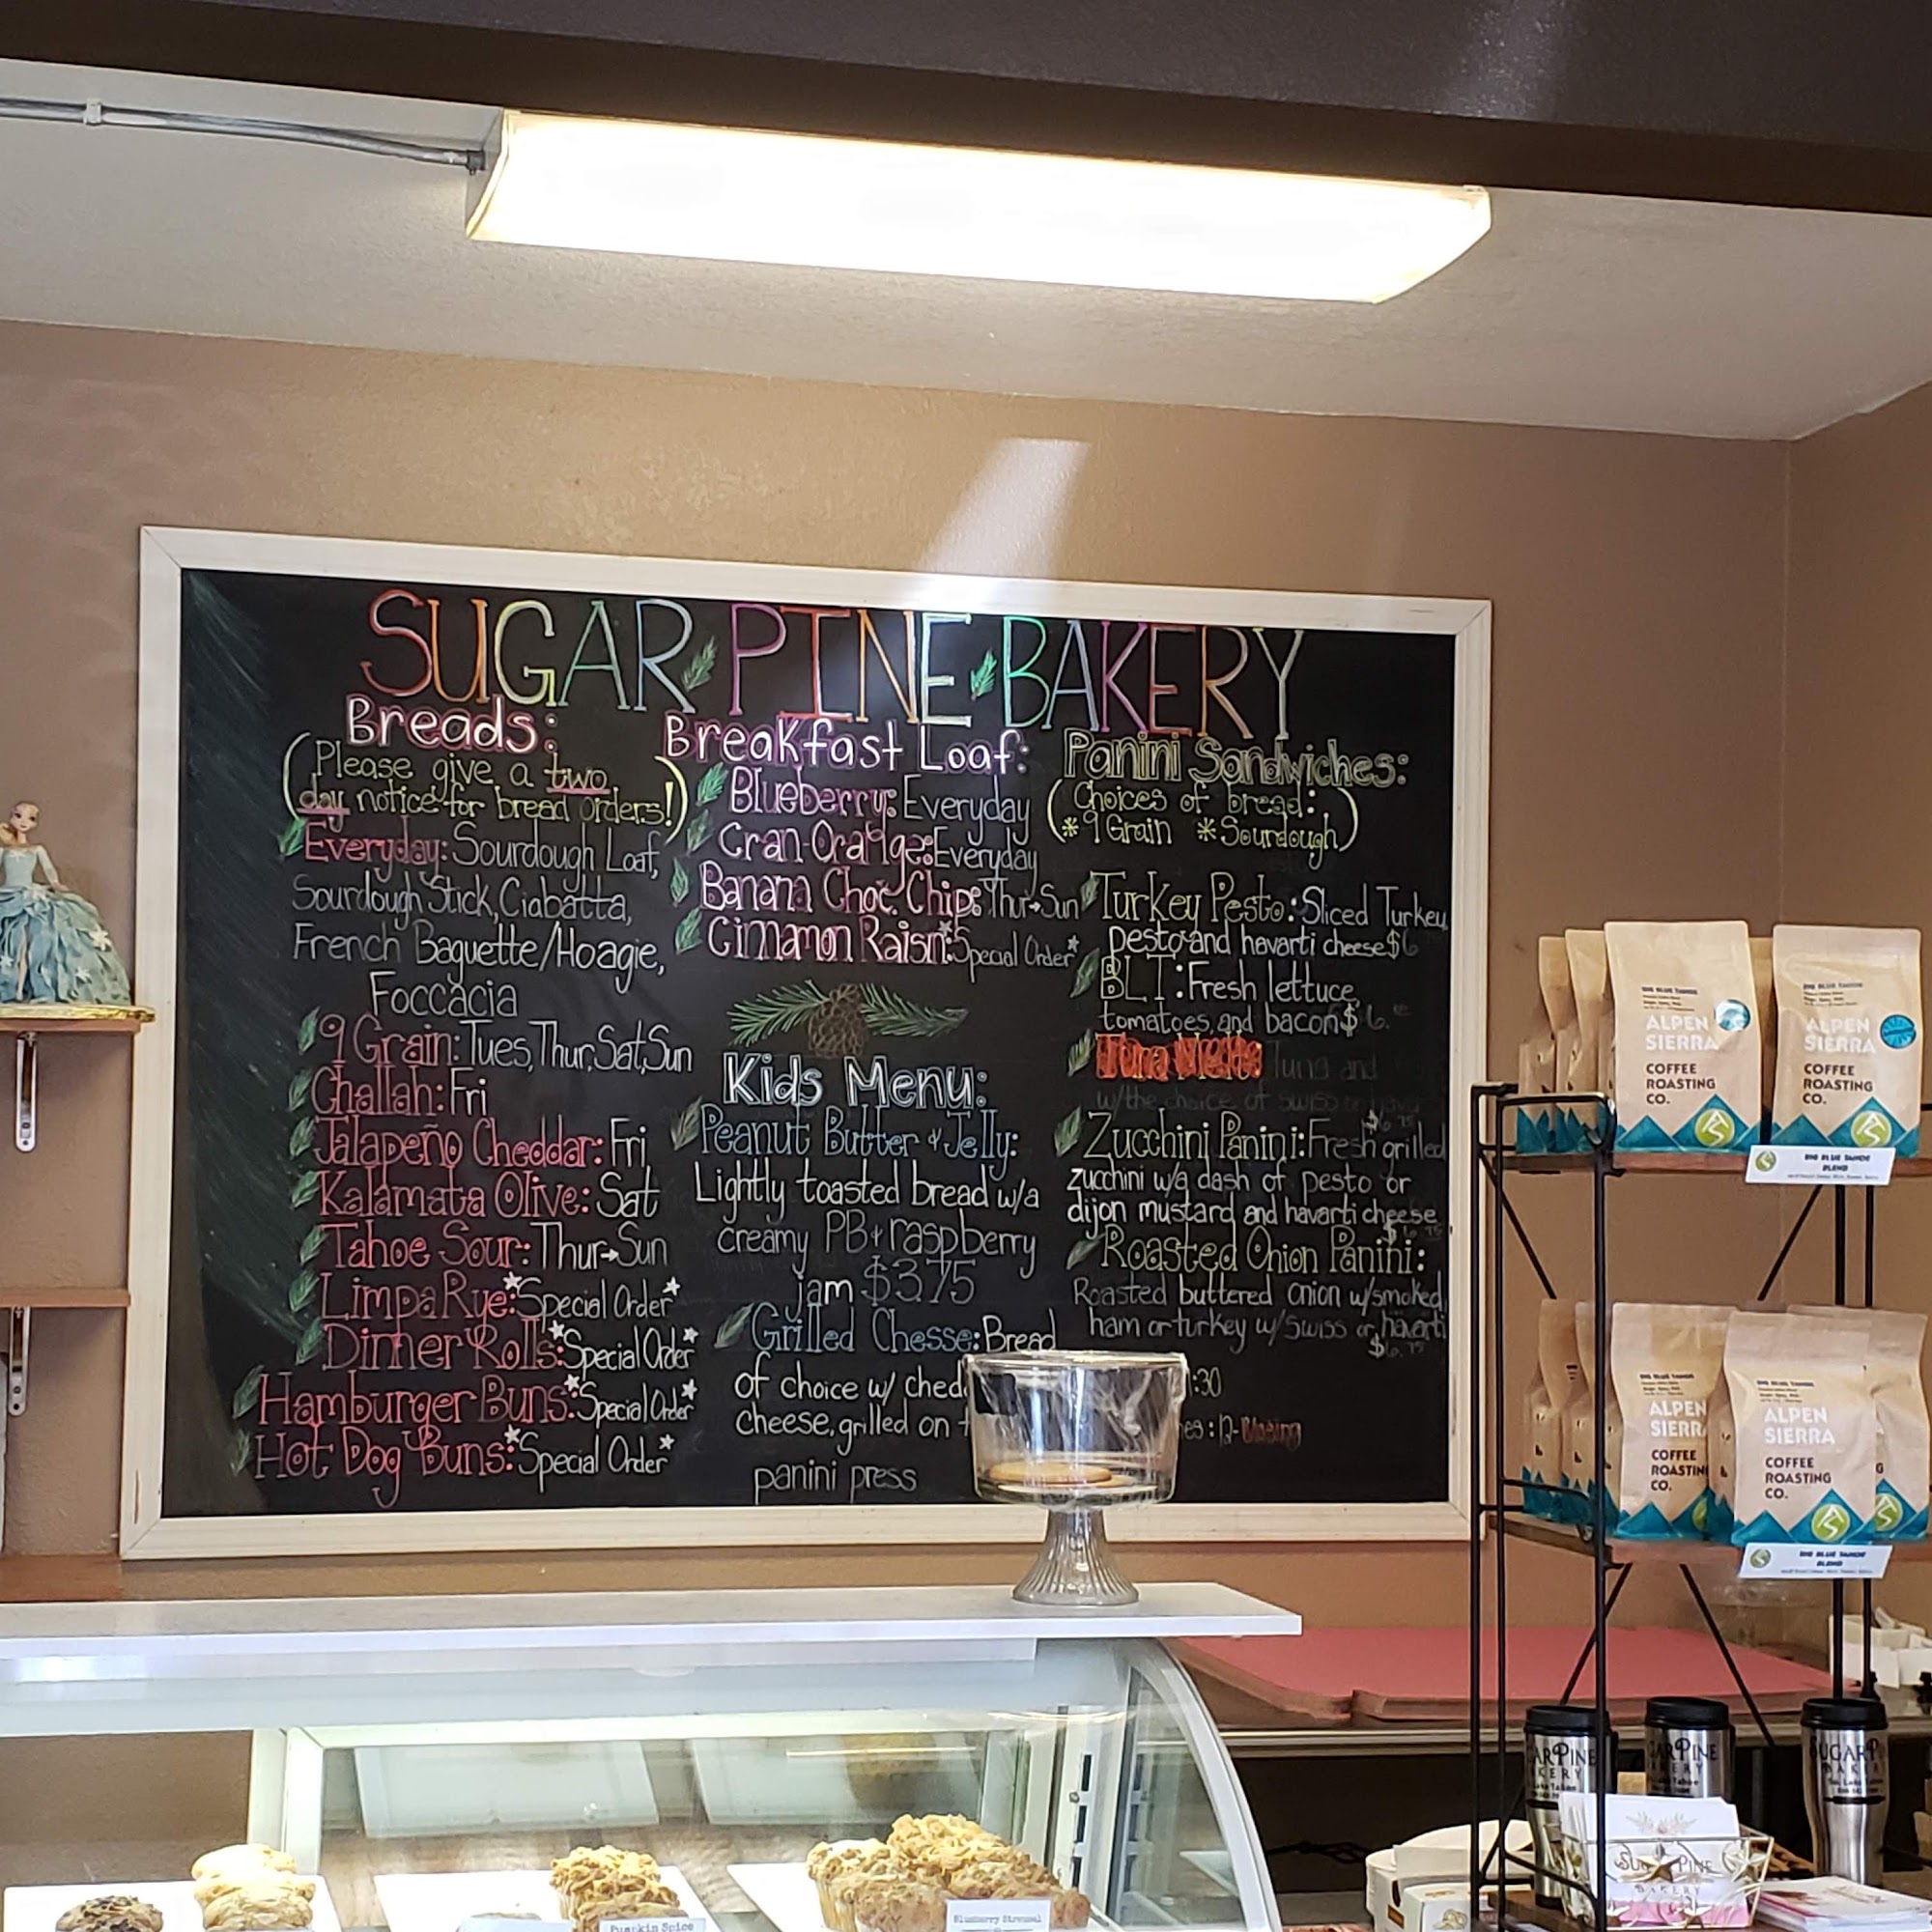 SUGAR PINE BAKERY
Breads:
(Please give a two
day notice for bread orders!)
Everyday: Sourdough Loaf,
Sourdough Stick, Ciabatta,
French Baguette/Hoagie,
Foccacia
9 Grain: Tues, Thur, Sat, Sun
Challah: Fri
Jalapeño Cheddar: Fri
Kalamata Olive: Sat
Tahoe Sour: Thur→Sun
Limpa Rye: *Special Order*
Dinner Rolls: *Special Order*
Hamburger Buns: *Special Order*
Hot Dog Buns: *Special Order*
Breakfast Loaf:
Blueberry: Everyday
Cran-Orange: Everyday
Banana Choc. Chip: Thur→Sun
Cinnamon Raisin: *Special Order*
Kids Menu:
Peanut Butter & Jelly:
Lightly toasted bread w/a
creamy PB & raspberry
jam $3.75
Grilled Chesse: Bread
of choice w/ ched
cheese, grilled on
panini press
Panini Sandwiches:
(Choices of bread:
*9 Grain *Sourdough)
Turkey Pesto: Sliced Turkey,
pesto and havarti cheese $6
BLT: Fresh lettuce
tomatoes, and bacon $6.
Tuna Melt: Tuna and
w/the choice of swiss or
Zucchini Panini: Fresh grilled
zucchini w/a dash of pesto or
dijon mustard and havarti cheese
Roasted Onion Panini:
Roasted buttered onion w/smoked
ham or turkey w/swiss or havarti
$6.75
:30
es: 12-Closing
ALPEN
SIERRA
COFFEE
ROASTING
CO.
ALPEN
SIERRA
COFFEE
ROASTING
CO.
BIG BLUE TAHOE
BLEND
ALPEN
SIERR
COFFEE
ROASTIN
CO.
ALPEN
SIERRA
COFFEE
ROASTING
CO.
BIG BLUE TAHOE
BLEND
ARPINE
KERY
ARPINE
UGARP
BAKE
SUGAR PINE
BAKERY
Pumpkin Spice
Blueberry Streusel